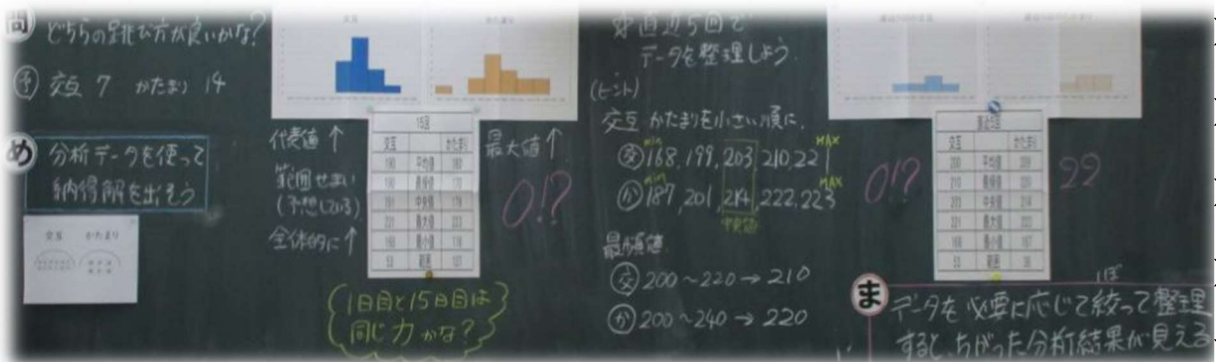 問 どちらの跳び方が良いかな?
予 交互 7 かたまり 14
め 分析データを使って
納得解を出そう
交互 かたまり
交互
かたまり
代表値↑
範囲せまい
(予想している)
全体的に↑
15回
交互 かたまり
190 平均値 180
中央値
最大値 223
最小値
範囲
最大値↑
0!?
1日目と15日目は
同じ力かな?
直近5回で
データを整理しよう.
(ヒント)
交互 かたまりを小さい順に.
min MAX
交 168,199,203,210,221
min MAX
か 187,201,214,222,223
中央値
最頻値
交 200~220→210
か 200~240→220
交互 かたまり
平均値
最頻値
中央値
最大値
最小値
範囲
0!?
22
ま データを必要に応じて絞って整理
しぼ
すると、ちがった分析結果が見える